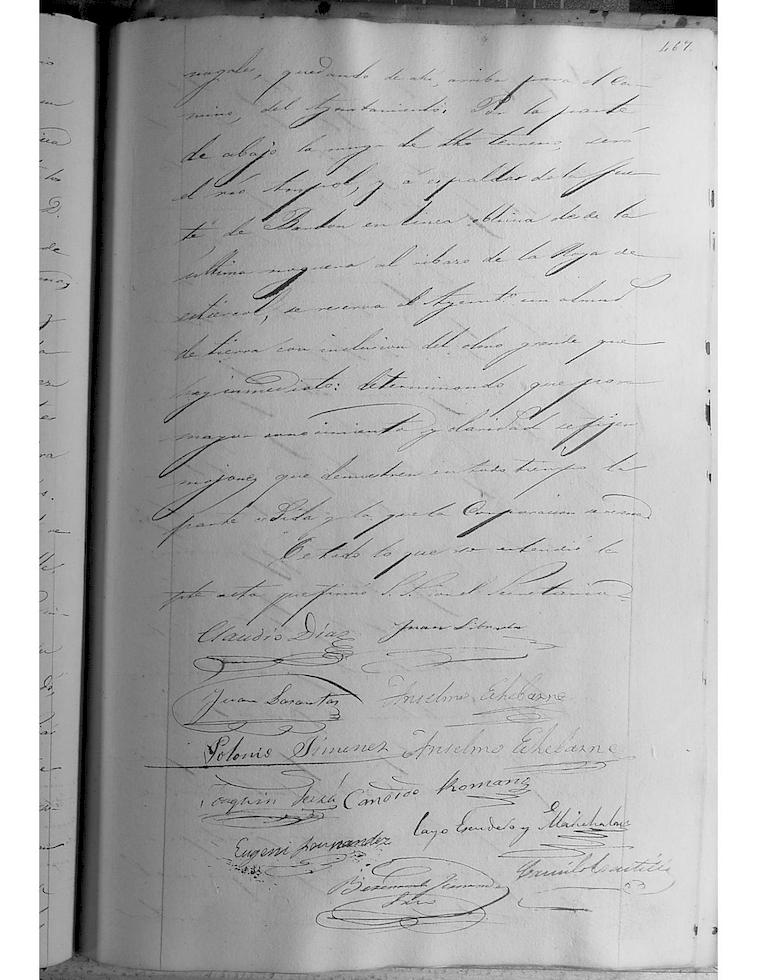 467.
nogales, quedando de ahi, arriba para el Ca-
mino, del Ayuntamiento. Por la parte
de abajo la muga de dho terreno, será
el rio y á espaldas de la fuen
te, de en linea oblicua desde la
ultima noguera al ribazo de la Hoya de
estiercol, se reserva el Ayunto un almud
de tierra con inclusion del olmo grande que
hay inmediato: determinando que para
mayor conocimiento y claridad se fijen
mojones que demuestren en todo tiempo la
parte cedida y la que la Corporacion se reserva
De todo lo que se estendió la
pte acta que firmó S. S. con el Secretario
Claudio Díaz Juan
Juan Anselmo Echebarne
Polonio Jimenez Anselmo Echebarne
Joaquin Candido Romano
Eugeni Fernandez Cayo Escudero y
Camilo Castilla